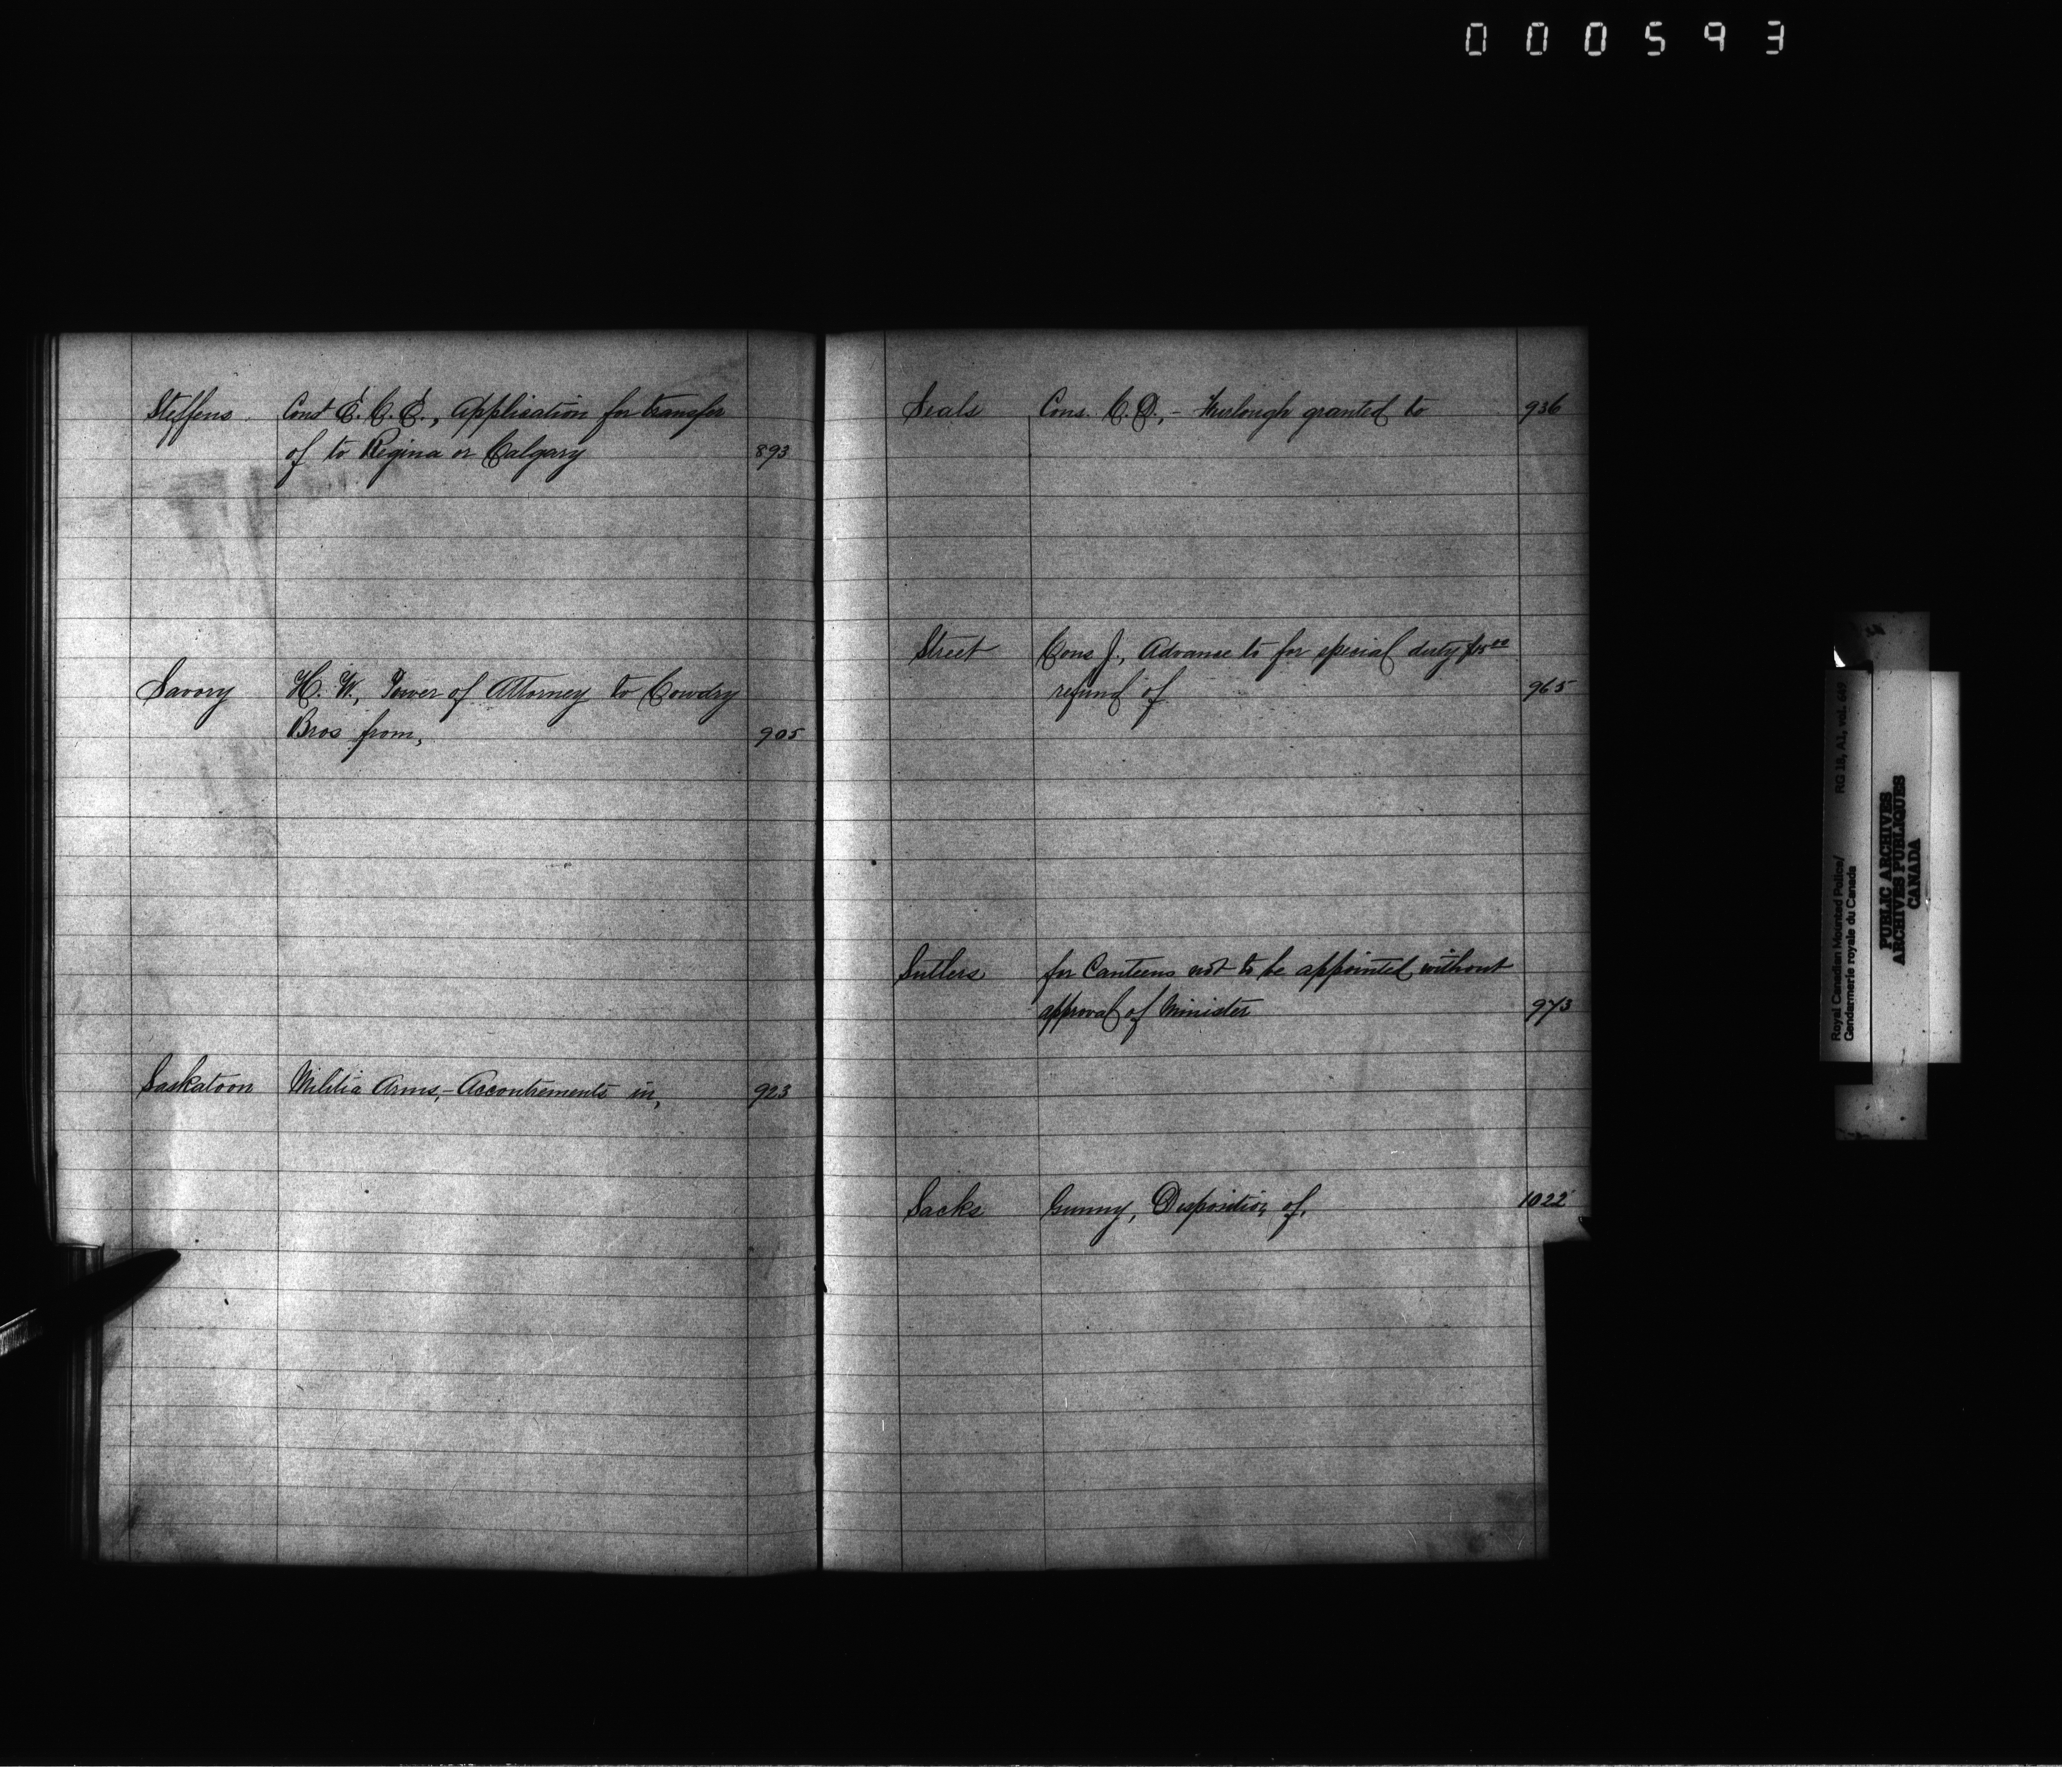 000593
Steffens Const E. C. E., Application for transfer
of to Regina or Calgary 893
Savory H. W., Power of Attorney to Cowdry
Bros from, 905
Saskatoon Militia Arms, - Accoutrements in, 923
Seals Cons. C. D., - Furlough granted to 936
Street Cons J., Advance to for special duty
refund of 965
Sutlers for Canteens not to be appointed without
approval of Minister 973
Sacks Gunny, Disposition of, 1022
Royal Canadian Mounted Police/ RG 18, A1, vol. 649
Gendarmerie royale du Canada
PUBLIC ARCHIVES
ARCHIVES PUBLIQUES
CANADA